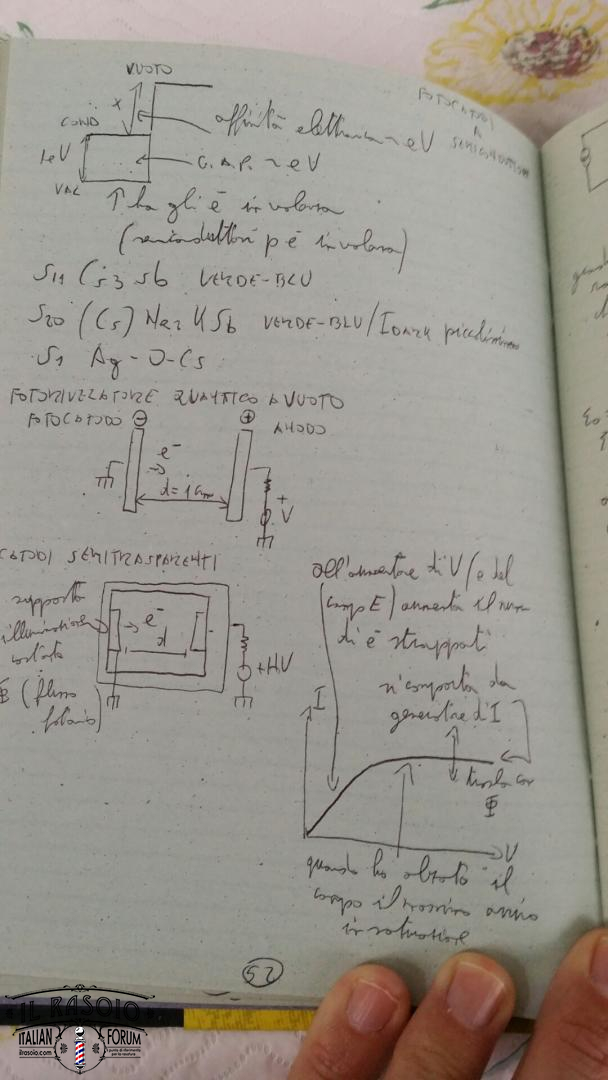 VUOTO
FOTOCATODI
A
SEMICONDUTTORI
X
COND
affinità elettronica ~ eV
1eV
G.A.P. ~ eV
VAL
ha gli e⁻ in valenza
(semiconduttori p e⁻ in valenza)
S11 Cs3 Sb VERDE-BLU
S20 (Cs) Na2 K Sb VERDE-BLU/I DARK piccolissima
S1 Ag-O-Cs
FOTORIVELATORE QUANTICO A VUOTO
FOTOCATODO ⊖ ⊕ ANODO
e⁻
d=1cm
+
V
CATODI SEMITRASPARENTI
supporto
illuminazione
costante
Φ (flusso
e⁻
d
+HV
All'aumentare di V (e del
campo E) aumenta il num
di e⁻ strappati
si comporta da
generatore d'I
I
trasla con
Φ
V
quando ho alzato il
campo il massimo arrivo
in saturazione
52
IL RASOIO
ITALIAN FORUM
ilrasoio.com